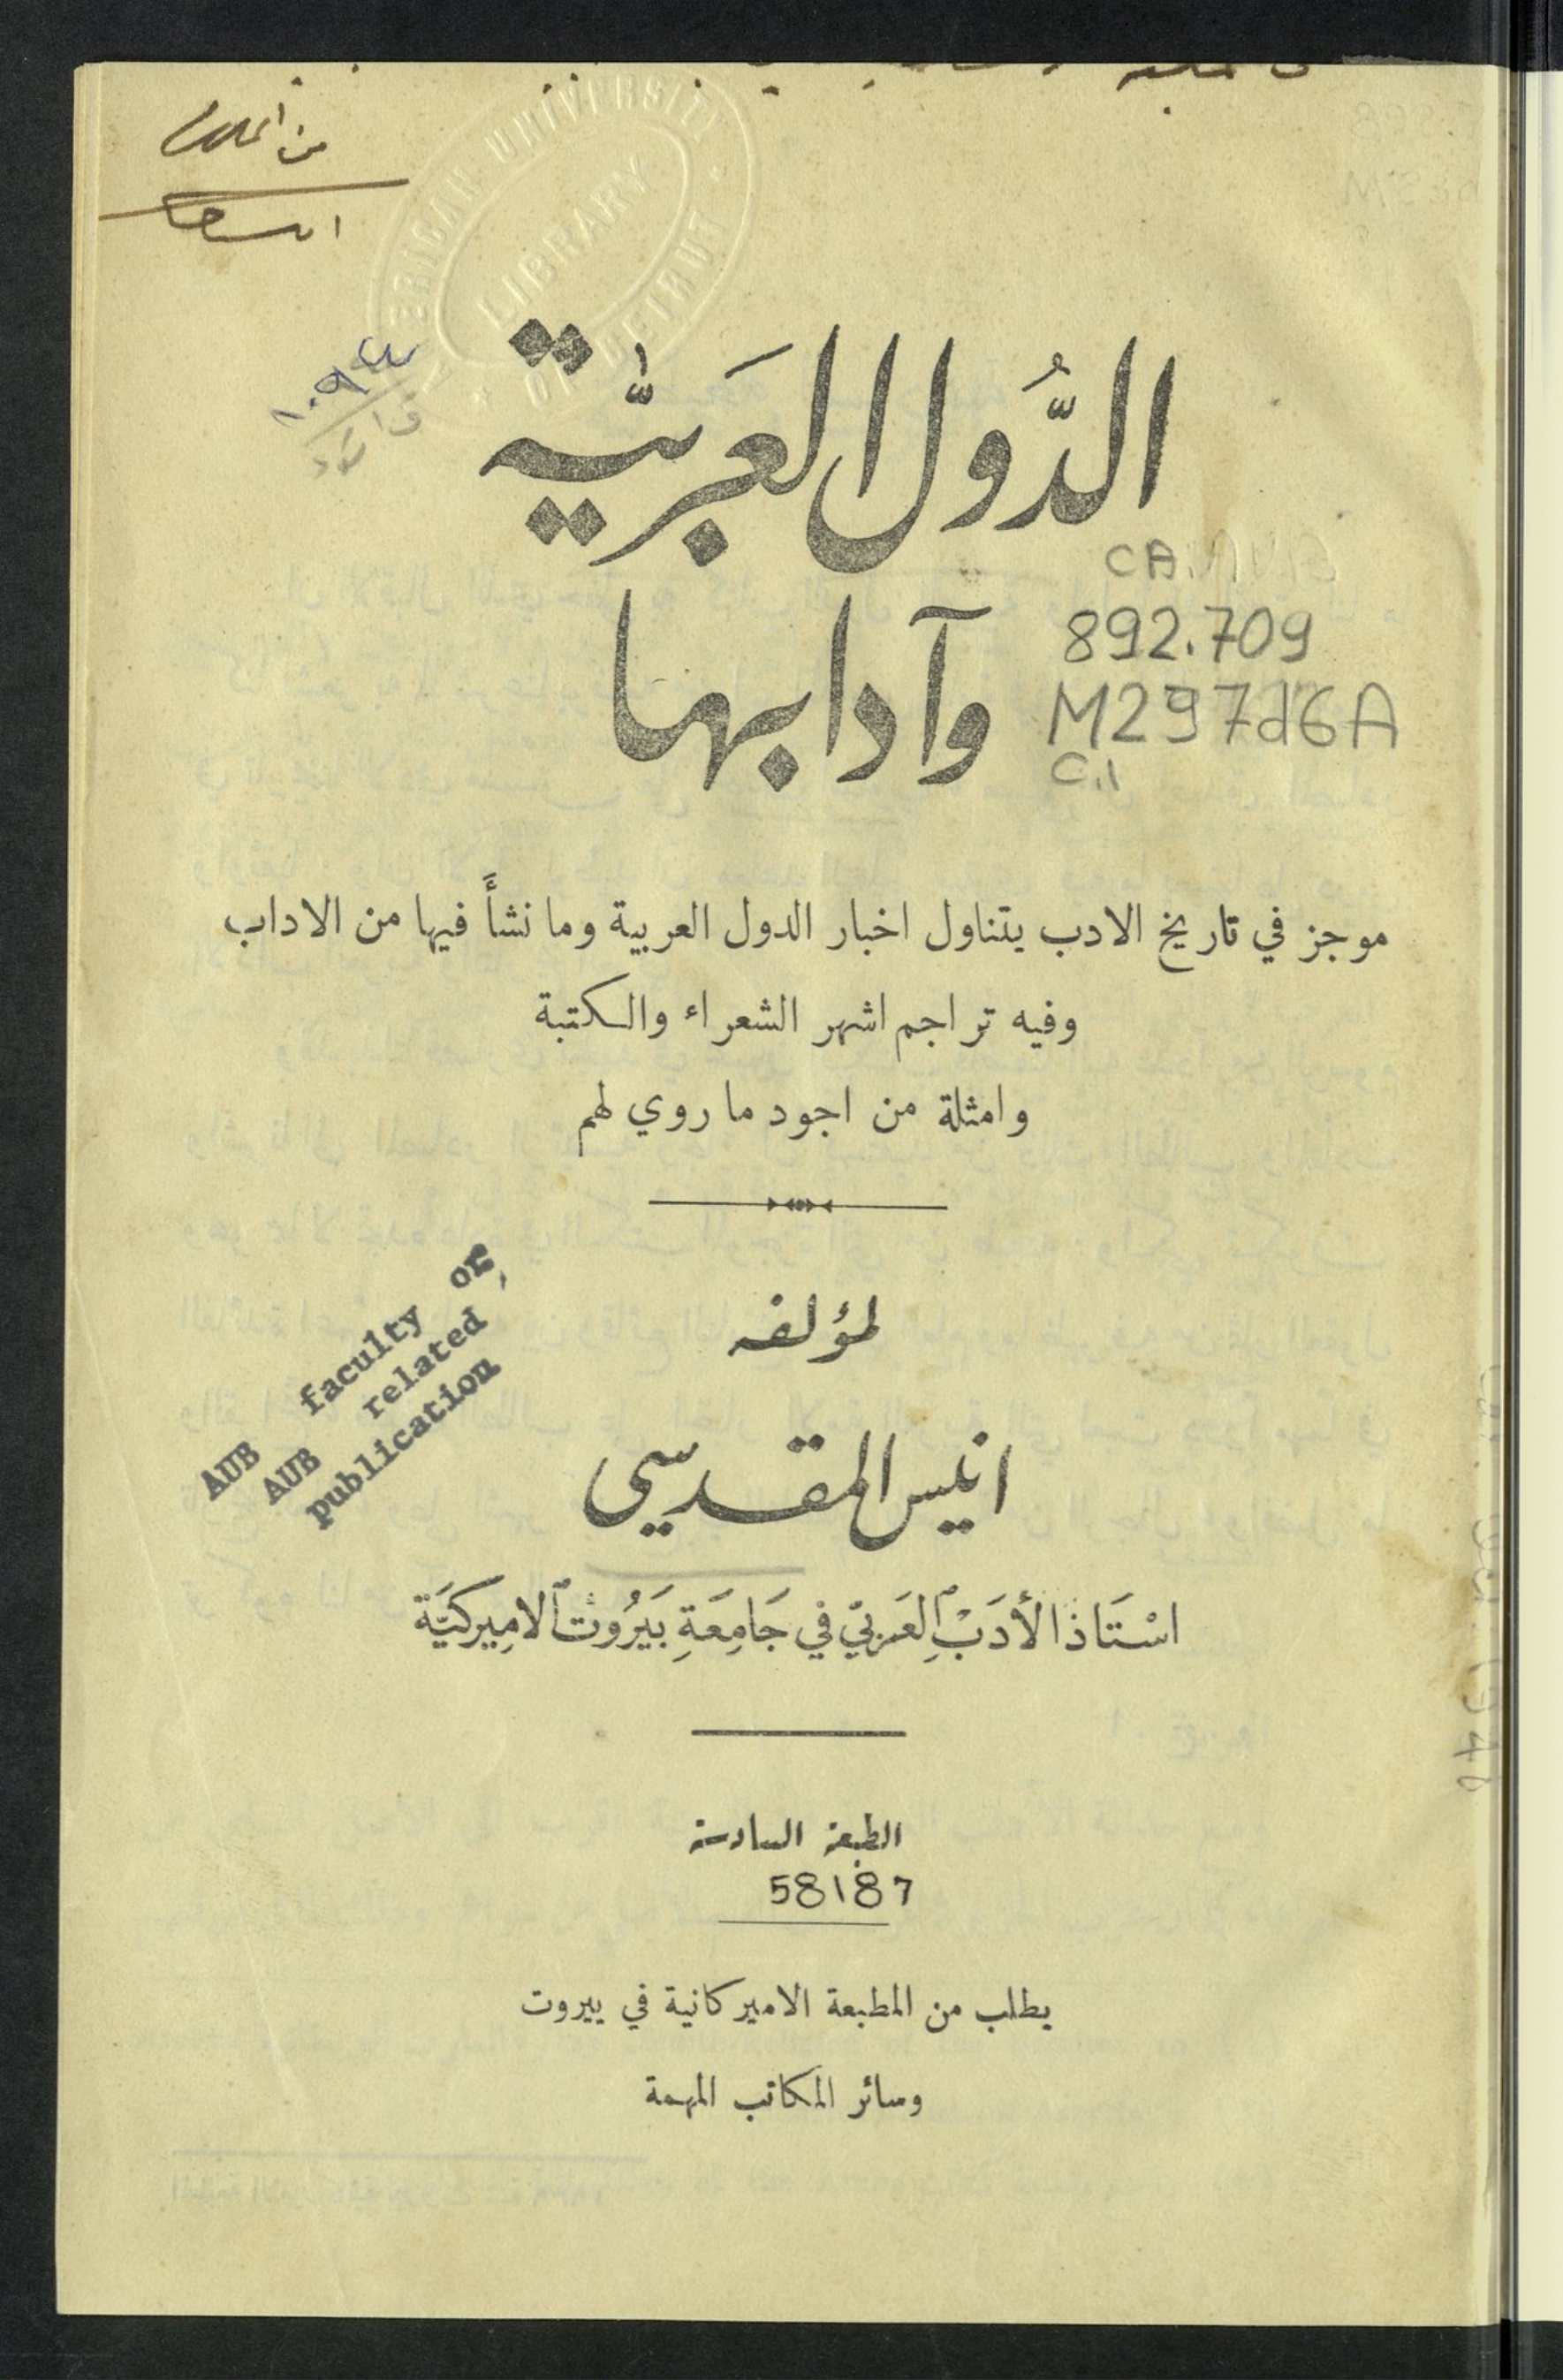 AMERICAN UNIVERSITY
LIBRARY
OF BEIRUT
١٠٩٤
الدُّوَل العَرَبيَّة
وآدابها
892.709
M297d6A
C.1
موجز في تاريخ الادب يتناول اخبار الدول العربية وما نشأَ فيها من الاداب
وفيه تراجم اشهر الشعراء والكتبة
وامثلة من اجود ما روي لهم
AUB faculty or
AUB related
publication
لمؤلفه
انيس المقدسي
اسْتَاذ الأدَبْ العَرَبيّ في جَامِعَةِ بَيرُوت الاميركيَّة
الطبعة السادسة
58187
يطلب من المطبعة الاميركانية في بيروت
وسائر المكاتب المهمة